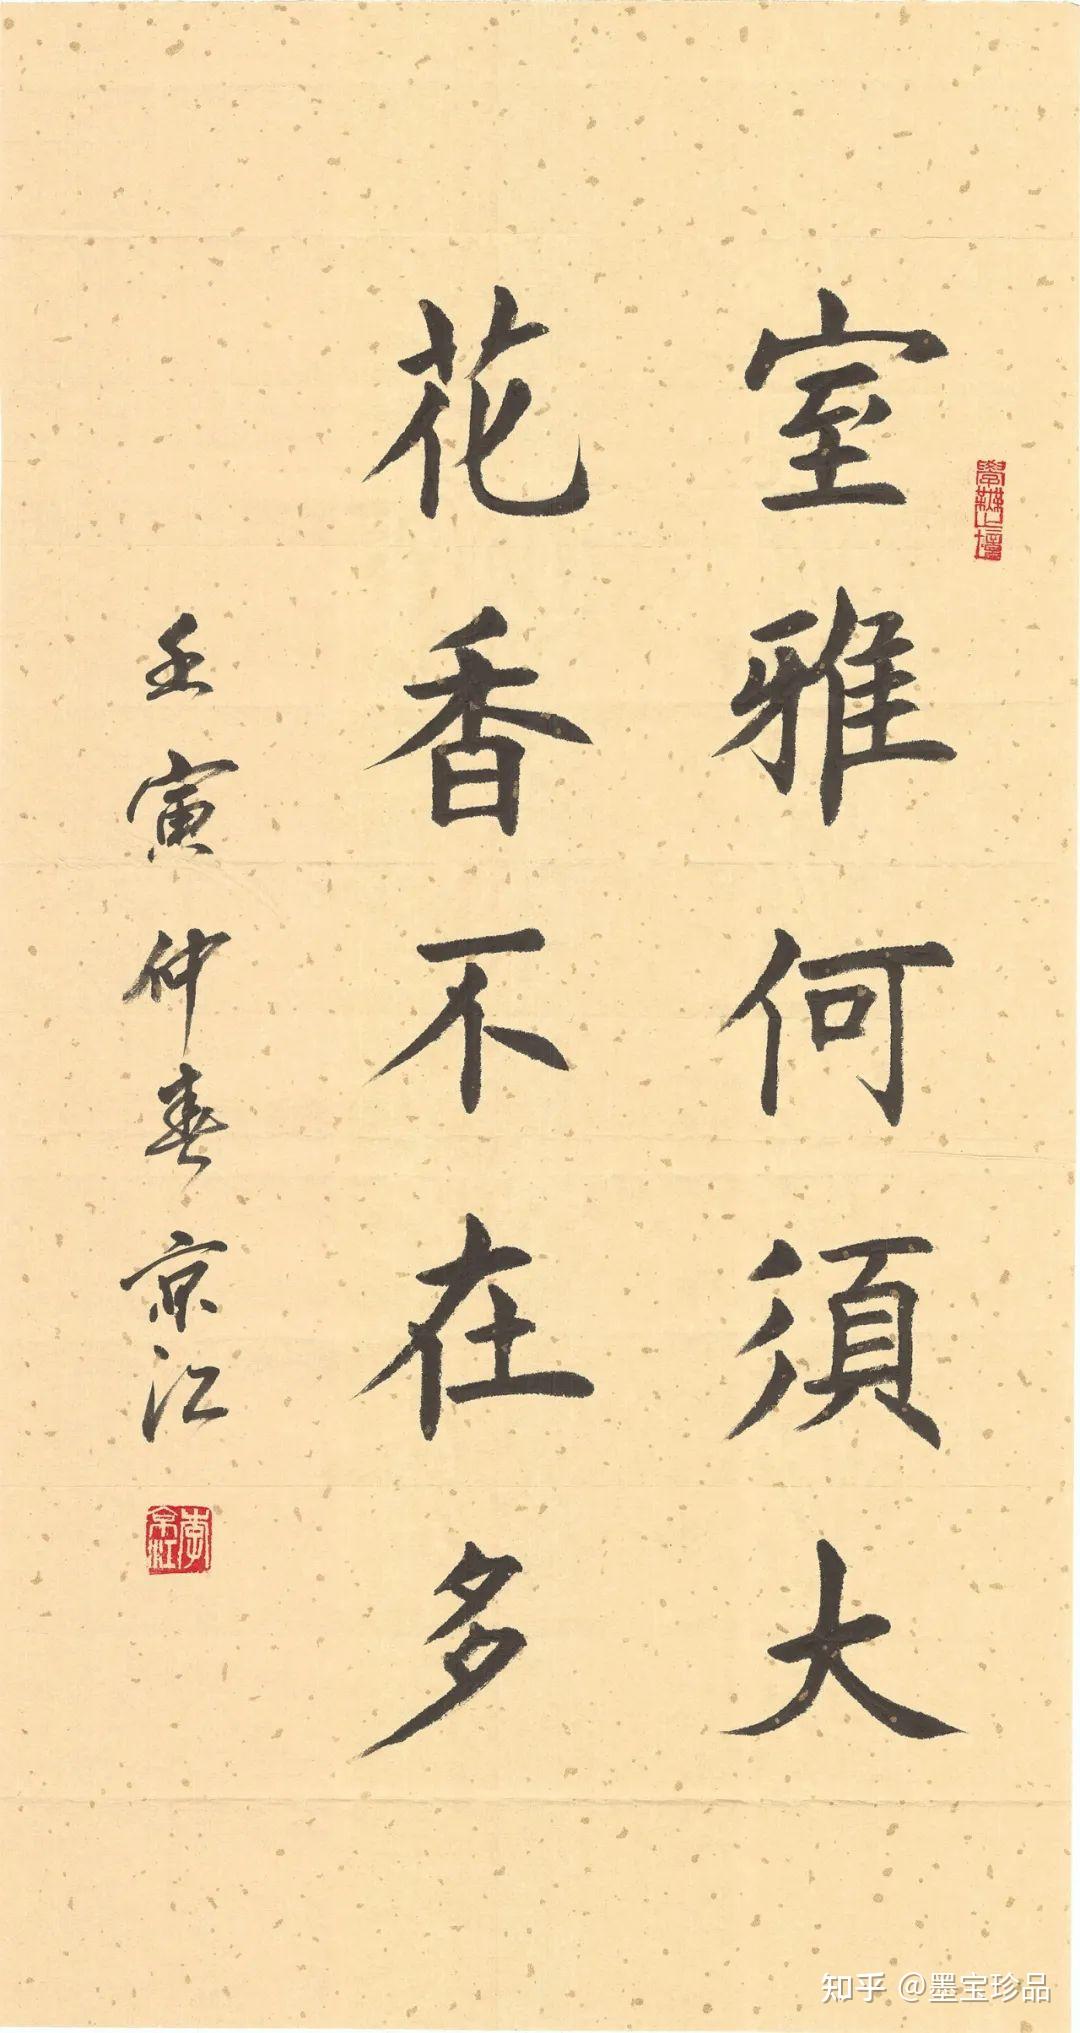 室雅何須大
花香不在多
壬寅仲春京江
李京江
知乎 @墨宝珍品